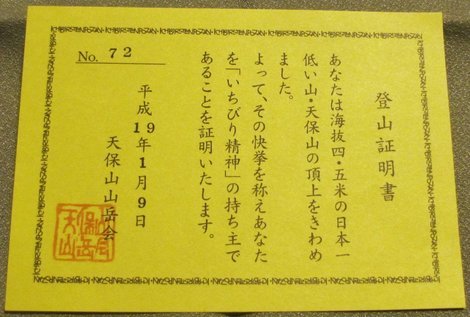 登山証明書
あなたは海抜四・五米の日本一
低い山・天保山の頂上をきわめ
ました。
よって、その快挙を称えあなた
を「いちびり精神」の持ち主で
あることを証明いたします。
平成19年1月9日
天保山山岳会
No. 72